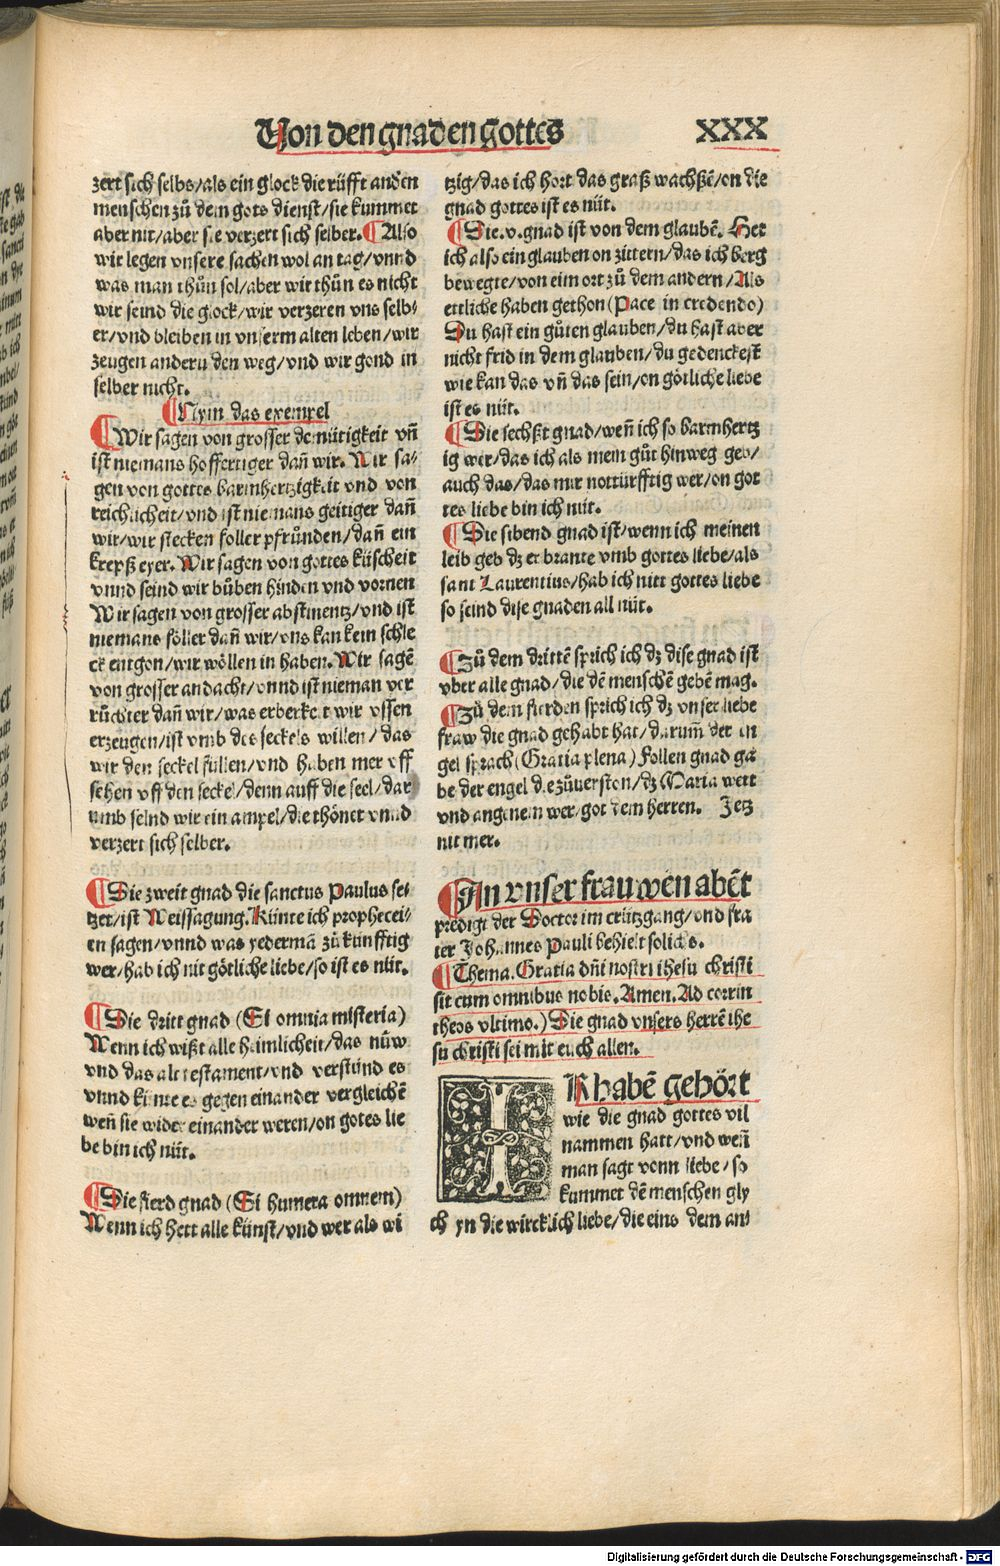 Von den gnaden gottes
XXX
zert sich selbs/als ein glock die rüfft anden
menschen zů dem gots dienst/sie kummet
aber nit/aber sie verzert sich selber. ¶Also
wir legen vnsere sachen wol an tag/vnnd
was man thůn sol/aber wir thůn es nicht
wir seind die glock/wir verzeren vns selb⸗
er/vnd bleiben in vnserm alten leben/wir
zeugen andern den weg/vnd wir gond in
selber nicht.
¶Nym das exempel
¶Wir sagen von grosser demütigkeit vñ
ist niemans hoffertiger dañ wir. Wir sa⸗
gen von gottes barmhertzigkeit vnd von
reichlicheit/vnd ist niemans geitiger dañ
wir/wir stecken foller pfrůnden/dañ ein
krepß eyer. Wir sagen von gottes küscheit
vnnd seind wir bůben hinden vnd vornen
Wir sagen von grosser abstinentz/vnd ist
niemans föller dañ wir/vns kan kein schle
ck entgon/wir wöllen in haben. Wir sagē
von grosser andacht/vnnd ist nieman ver
růchter dañ wir/was erberkeit wir vssen
erzeugen/ist vmb des seckels willen/das
wir den seckel füllen/vnd haben mer vff
sehen vff den seckel/denn auff die seel/dar
umb seind wir ein ampel/die thönet vnnd
verzert sich selber.
¶Die zweit gnad die sanctus Paulus sei
tzet/ist Weissagung. Künte ich prophecei⸗
en sagen/vnnd was yedermā zů künfftig
wer/hab ich nit götliche liebe/so ist es nüt.
¶Die dritt gnad (Si omnia misteria)
Wenn ich wißt alle heimlicheit/das nüw
vnd das alt testament/vnd verstünd es
vnnd künte es gegen einander vergleichē
weñ sie wider einander weren/on gotes lie
be bin ich nüt.
¶Die fierd gnad (Si humera omnem)
Wenn ich hett alle künst/vnd wer als wi
tzig/das ich hort das graß wachßē/on die
gnad gottes ist es nüt.
¶Die.v.gnad ist von dem glaubē. Het
ich also ein glauben on zittern/das ich berg
bewegte/von eim ort zů dem andern/Als
ettliche haben gethon (Pace in credendo)
Du hast ein gůten glauben/du hast aber
nicht frid in dem glauben/du gedenckest
wie kan das vñ das sein/on götliche liebe
ist es nüt.
¶Die sechßt gnad/weñ ich so barmhertz
ig wer/das ich als mein gůt hinweg geb/
auch das/das mir notturfftig wer/on got
tes liebe bin ich nüt.
¶Die sibend gnad ist/wenn ich meinen
leib geb dz er brante vmb gottes liebe/als
sant Laurentius/hab ich nitt gottes liebe
so seind dise gnaden all nüt.
¶Zů dem drittē sprich ich dz dise gnad ist
vber alle gnad/die dē menschē gebē mag.
¶Zů dem fierden sprich ich dz vnser liebe
fraw die gnad gehabt hat/darum̄ der en
gel sprach (Gratia plena) Follen gnad ga
be der engel die zůuersten/dz Maria wert
vnd angenem wer/got dem herren. Jetz
nit mer.
¶An vnser frauwen abēt
predigt der Doctor im crützgang/vnd fra
ter Johannes Pauli behielt solichs.
¶Thema. Gratia dñi nostri ihesu christi
sit cum omnibus nobis. Amen. Ad corrin
theos vltimo.) Die gnad vnsers herrē ihe
su christi sei mit euch allen.
IR habē gehört
wie die gnad gottes vil
nammen hatt/vnd weñ
man sagt vonn liebe/so
kummet dē menschen gly
ch yn die wircklich liebe/die eins dem an⸗
Digitalisierung gefördert durch die Deutsche Forschungsgemeinschaft - DFG